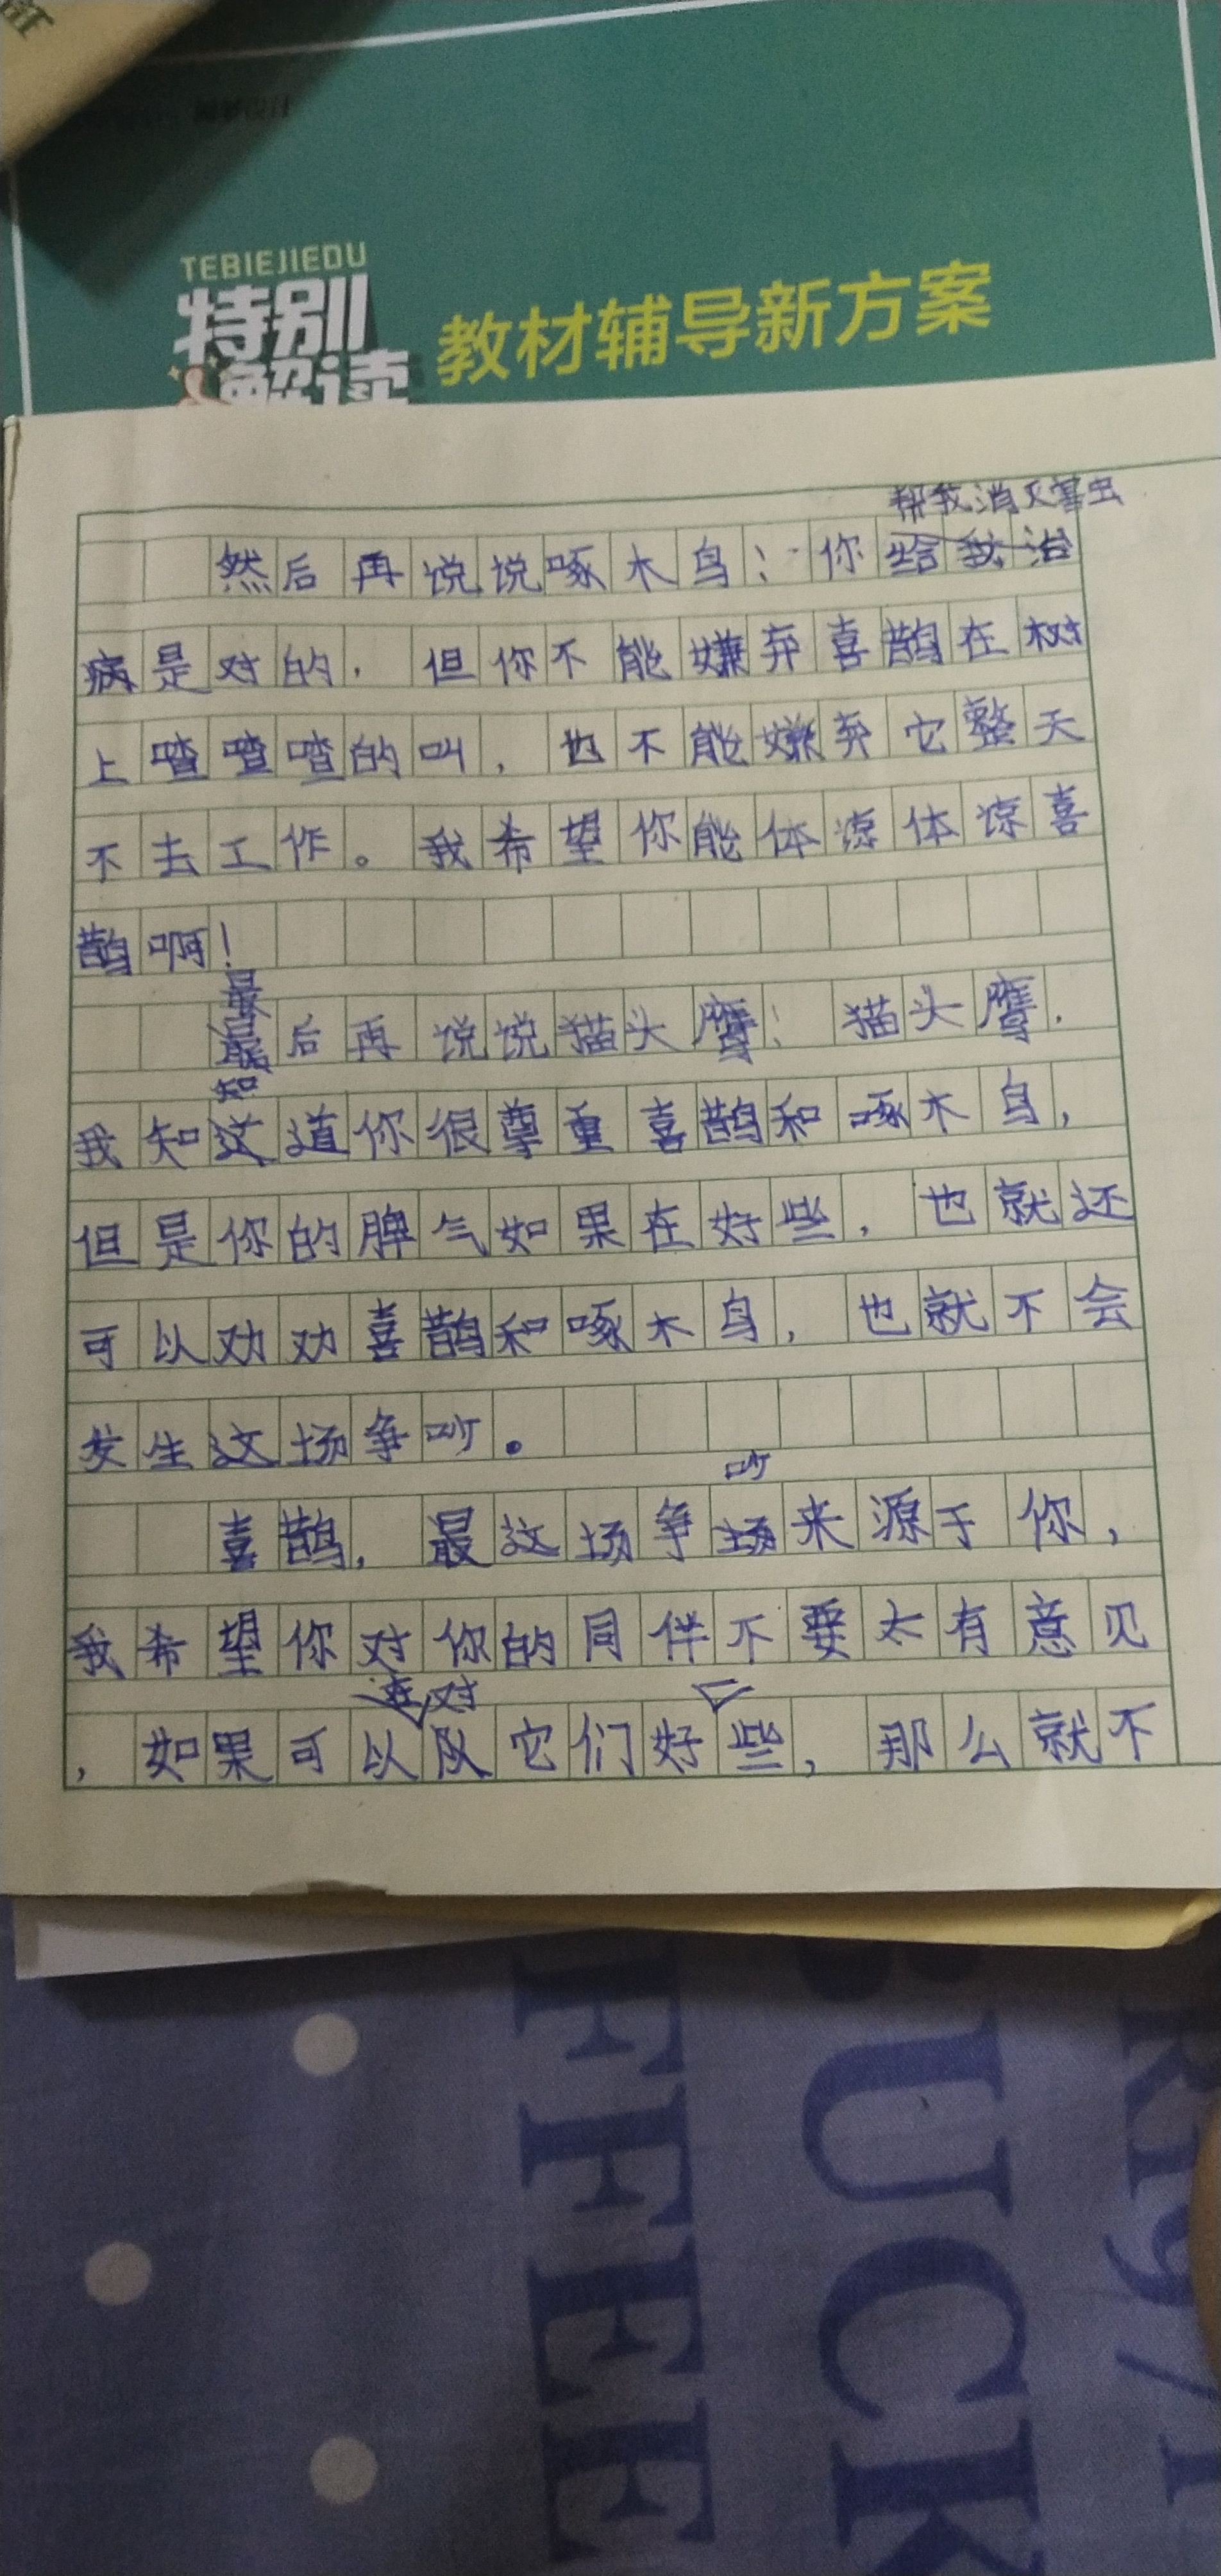 TEBIEJIEDU
特别
解读
教材辅导新方案
帮我消灭害虫
然后再说说啄木鸟：你给我治
病是对的，但你不能嫌弃喜鹊在树
上喳喳喳的叫，也不能嫌弃它整天
不去工作。我希望你能体谅体谅喜
鹊啊！
最
最后再说说猫头鹰！猫头鹰，
知
我知这道你很尊重喜鹊和啄木鸟，
但是你的脾气如果在好些，也就还
可以劝劝喜鹊和啄木鸟，也就不会
发生这场争吵。
吵
喜鹊，最这场争场来源于你，
我希望你对你的同伴不要太有意见
对
，如果可以队它们好些，那么就不
FFEE
UCK
R97